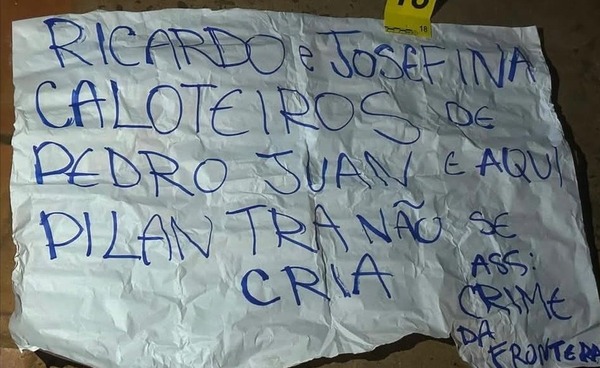 RICARDO e JOSEFINA
CALOTEIROS DE
PEDRO JUAN E AQUI
PILANTRA NÃO SE
CRIA
ASS:
CRIME
DA
FRONTERA
18